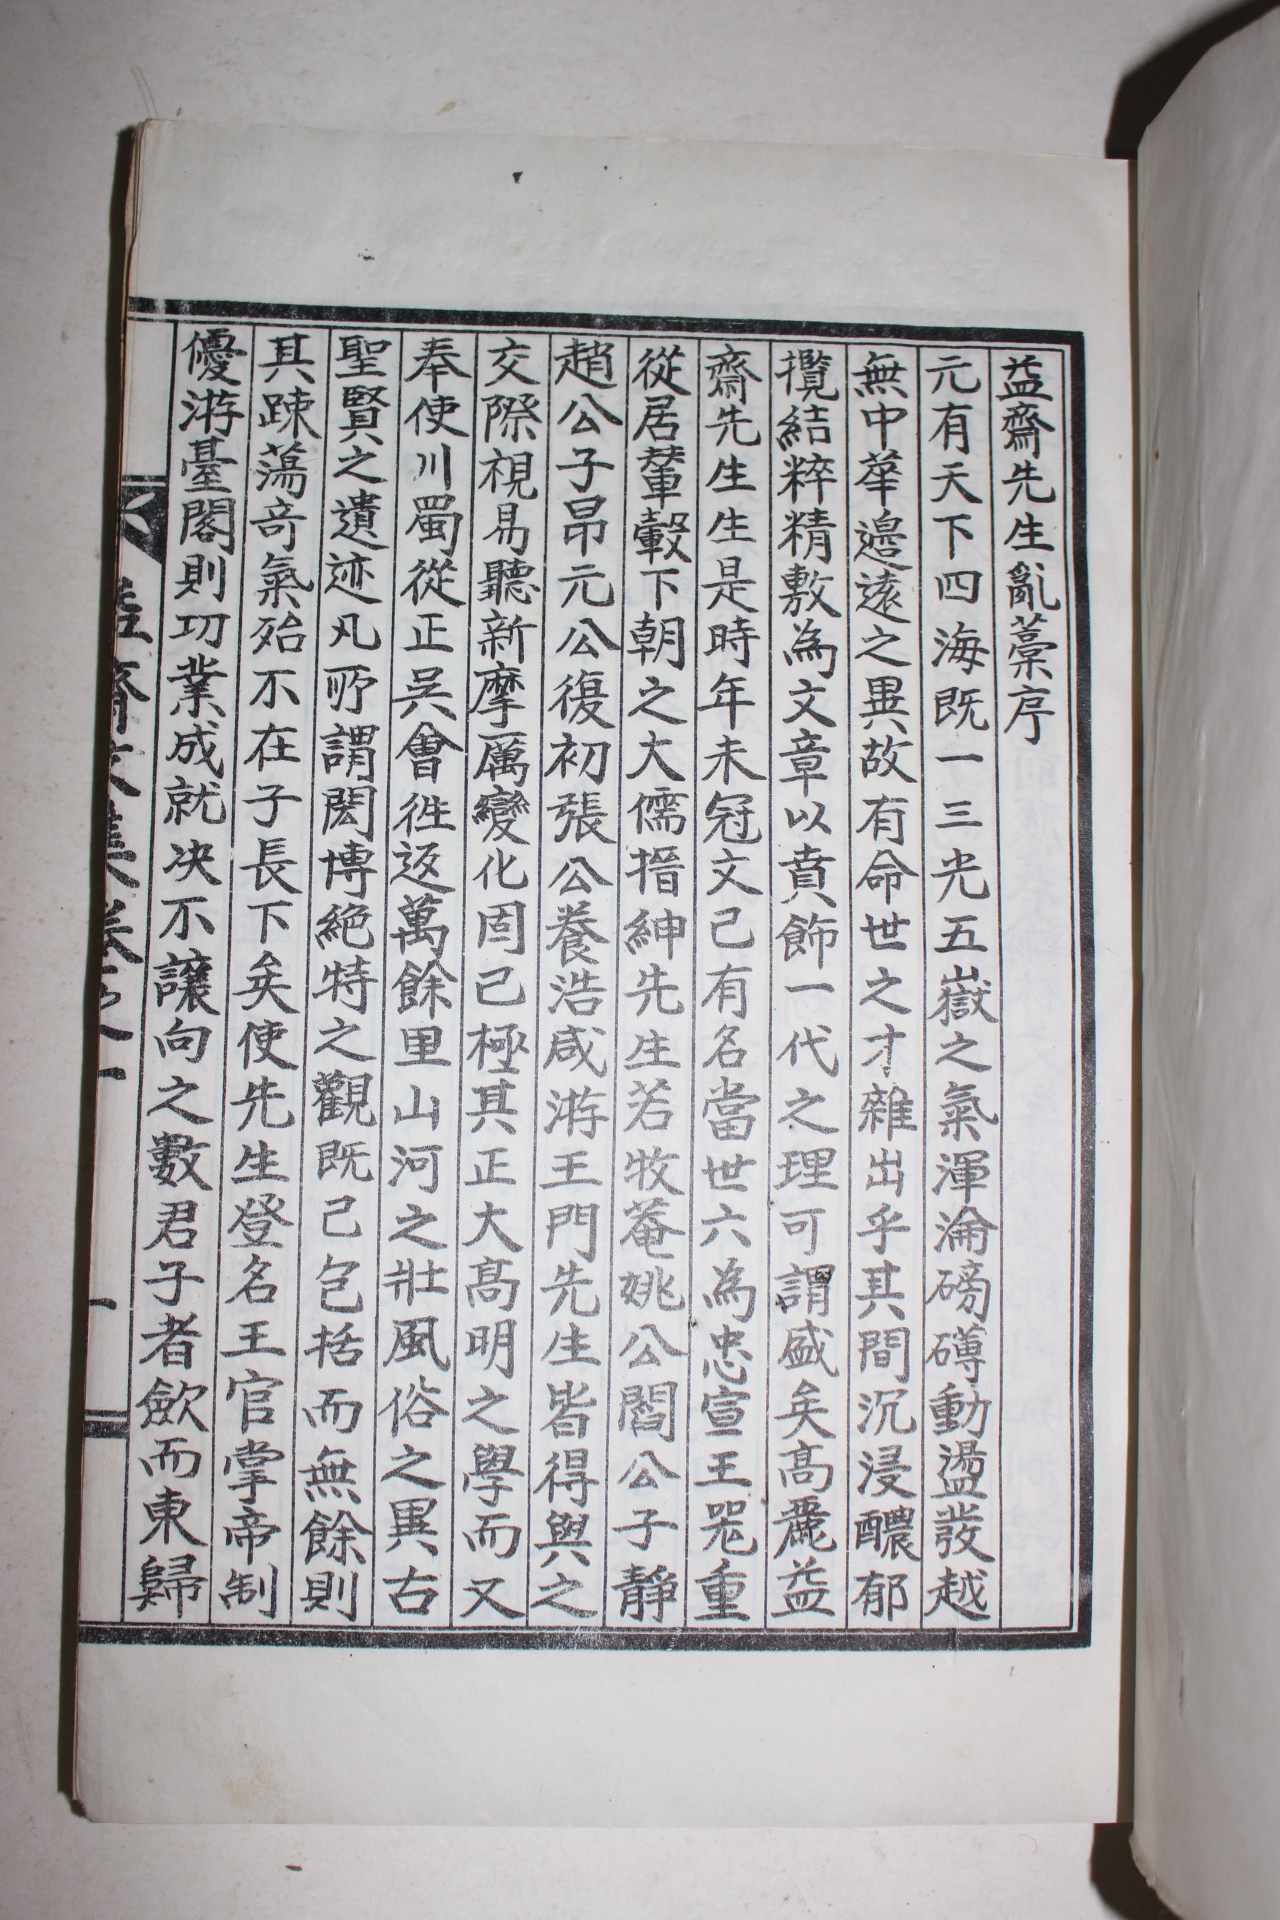 益齋先生亂藁序
元有天下四海既一三光五嶽之氣渾淪磅礴動盪發越
無中華邊遠之異故有命世之才雜出乎其間沉浸醲郁
攬結粹精敷為文章以賁飾一代之理可謂盛矣高麗益
齋先生生是時年未冠文已有名當世六為忠宣王器重
從居輦轂下朝之大儒搢紳先生若牧菴姚公閻公子靜
趙公子昂元公復初張公養浩咸游王門先生皆得與之
交際視易聽新摩厲變化固已極其正大高明之學而又
奉使川蜀從正吳會徃返萬餘里山河之壯風俗之異古
聖賢之遺迹凡所謂閎博絶特之觀既已包括而無餘則
其踈蕩奇氣殆不在子長下矣使先生登名王官掌帝制
優游臺閣則功業成就决不讓向之數君子者歛而東歸
益齋文集卷之一
一